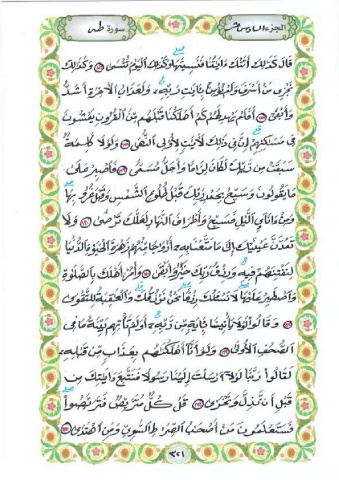 الجزء السادس عشر
سورة طه
قَالَ كَذَٰلِكَ أَتَتْكَ ءَايَٰتُنَا فَنَسِيتَهَا وَكَذَٰلِكَ الْيَوْمَ تُنسَىٰ ١٢٦ وَكَذَٰلِكَ
نَجْزِي مَنْ أَسْرَفَ وَلَمْ يُؤْمِنۢ بِـَٔايَٰتِ رَبِّهِۦ وَلَعَذَابُ الْأَخِرَةِ أَشَدُّ
وَأَبْقَىٰ ١٢٧ أَفَلَمْ يَهْدِ لَهُمْ كَمْ أَهْلَكْنَا قَبْلَهُم مِّنَ الْقُرُونِ يَمْشُونَ
فِي مَسَٰكِنِهِمْ إِنَّ فِي ذَٰلِكَ لَأَيَٰتٍ لِّأُولِي النُّهَىٰ ١٢٨ وَلَوْلَا كَلِمَةٌ
سَبَقَتْ مِن رَّبِّكَ لَكَانَ لِزَامًا وَأَجَلٌ مُّسَمًّى ١٢٩ فَاصْبِرْ عَلَىٰ
مَا يَقُولُونَ وَسَبِّحْ بِحَمْدِ رَبِّكَ قَبْلَ طُلُوعِ الشَّمْسِ وَقَبْلَ غُرُوبِهَا
وَمِنْ ءَانَآئِ الَّيْلِ فَسَبِّحْ وَأَطْرَافَ النَّهَارِ لَعَلَّكَ تَرْضَىٰ ١٣٠ وَلَا
تَمُدَّنَّ عَيْنَيْكَ إِلَىٰ مَا مَتَّعْنَا بِهِۦ أَزْوَٰجًا مِّنْهُمْ زَهْرَةَ الْحَيَوٰةِ الدُّنْيَا
لِنَفْتِنَهُمْ فِيهِ وَرِزْقُ رَبِّكَ خَيْرٌ وَأَبْقَىٰ ١٣١ وَأْمُرْ أَهْلَكَ بِالصَّلَوٰةِ
وَاصْطَبِرْ عَلَيْهَا لَا نَسْـَٔلُكَ رِزْقًا نَّحْنُ نَرْزُقُكَ وَالْعَٰقِبَةُ لِلتَّقْوَىٰ
١٣٢ وَقَالُوا لَوْلَا يَأْتِينَا بِـَٔايَةٍ مِّن رَّبِّهِۦ أَوَلَمْ تَأْتِهِم بَيِّنَةُ مَا فِي
الصُّحُفِ الْأُولَىٰ ١٣٣ وَلَوْ أَنَّا أَهْلَكْنَٰهُم بِعَذَابٍ مِّن قَبْلِهِۦ
لَقَالُوا رَبَّنَا لَوْلَا أَرْسَلْتَ إِلَيْنَا رَسُولًا فَنَتَّبِعَ ءَايَٰتِكَ مِن
قَبْلِ أَن نَّذِلَّ وَنَخْزَىٰ ١٣٤ قُلْ كُلٌّ مُّتَرَبِّصٌ فَتَرَبَّصُوا
فَسَتَعْلَمُونَ مَنْ أَصْحَٰبُ الصِّرَٰطِ السَّوِيِّ وَمَنِ اهْتَدَىٰ ١٣٥
٣٢١